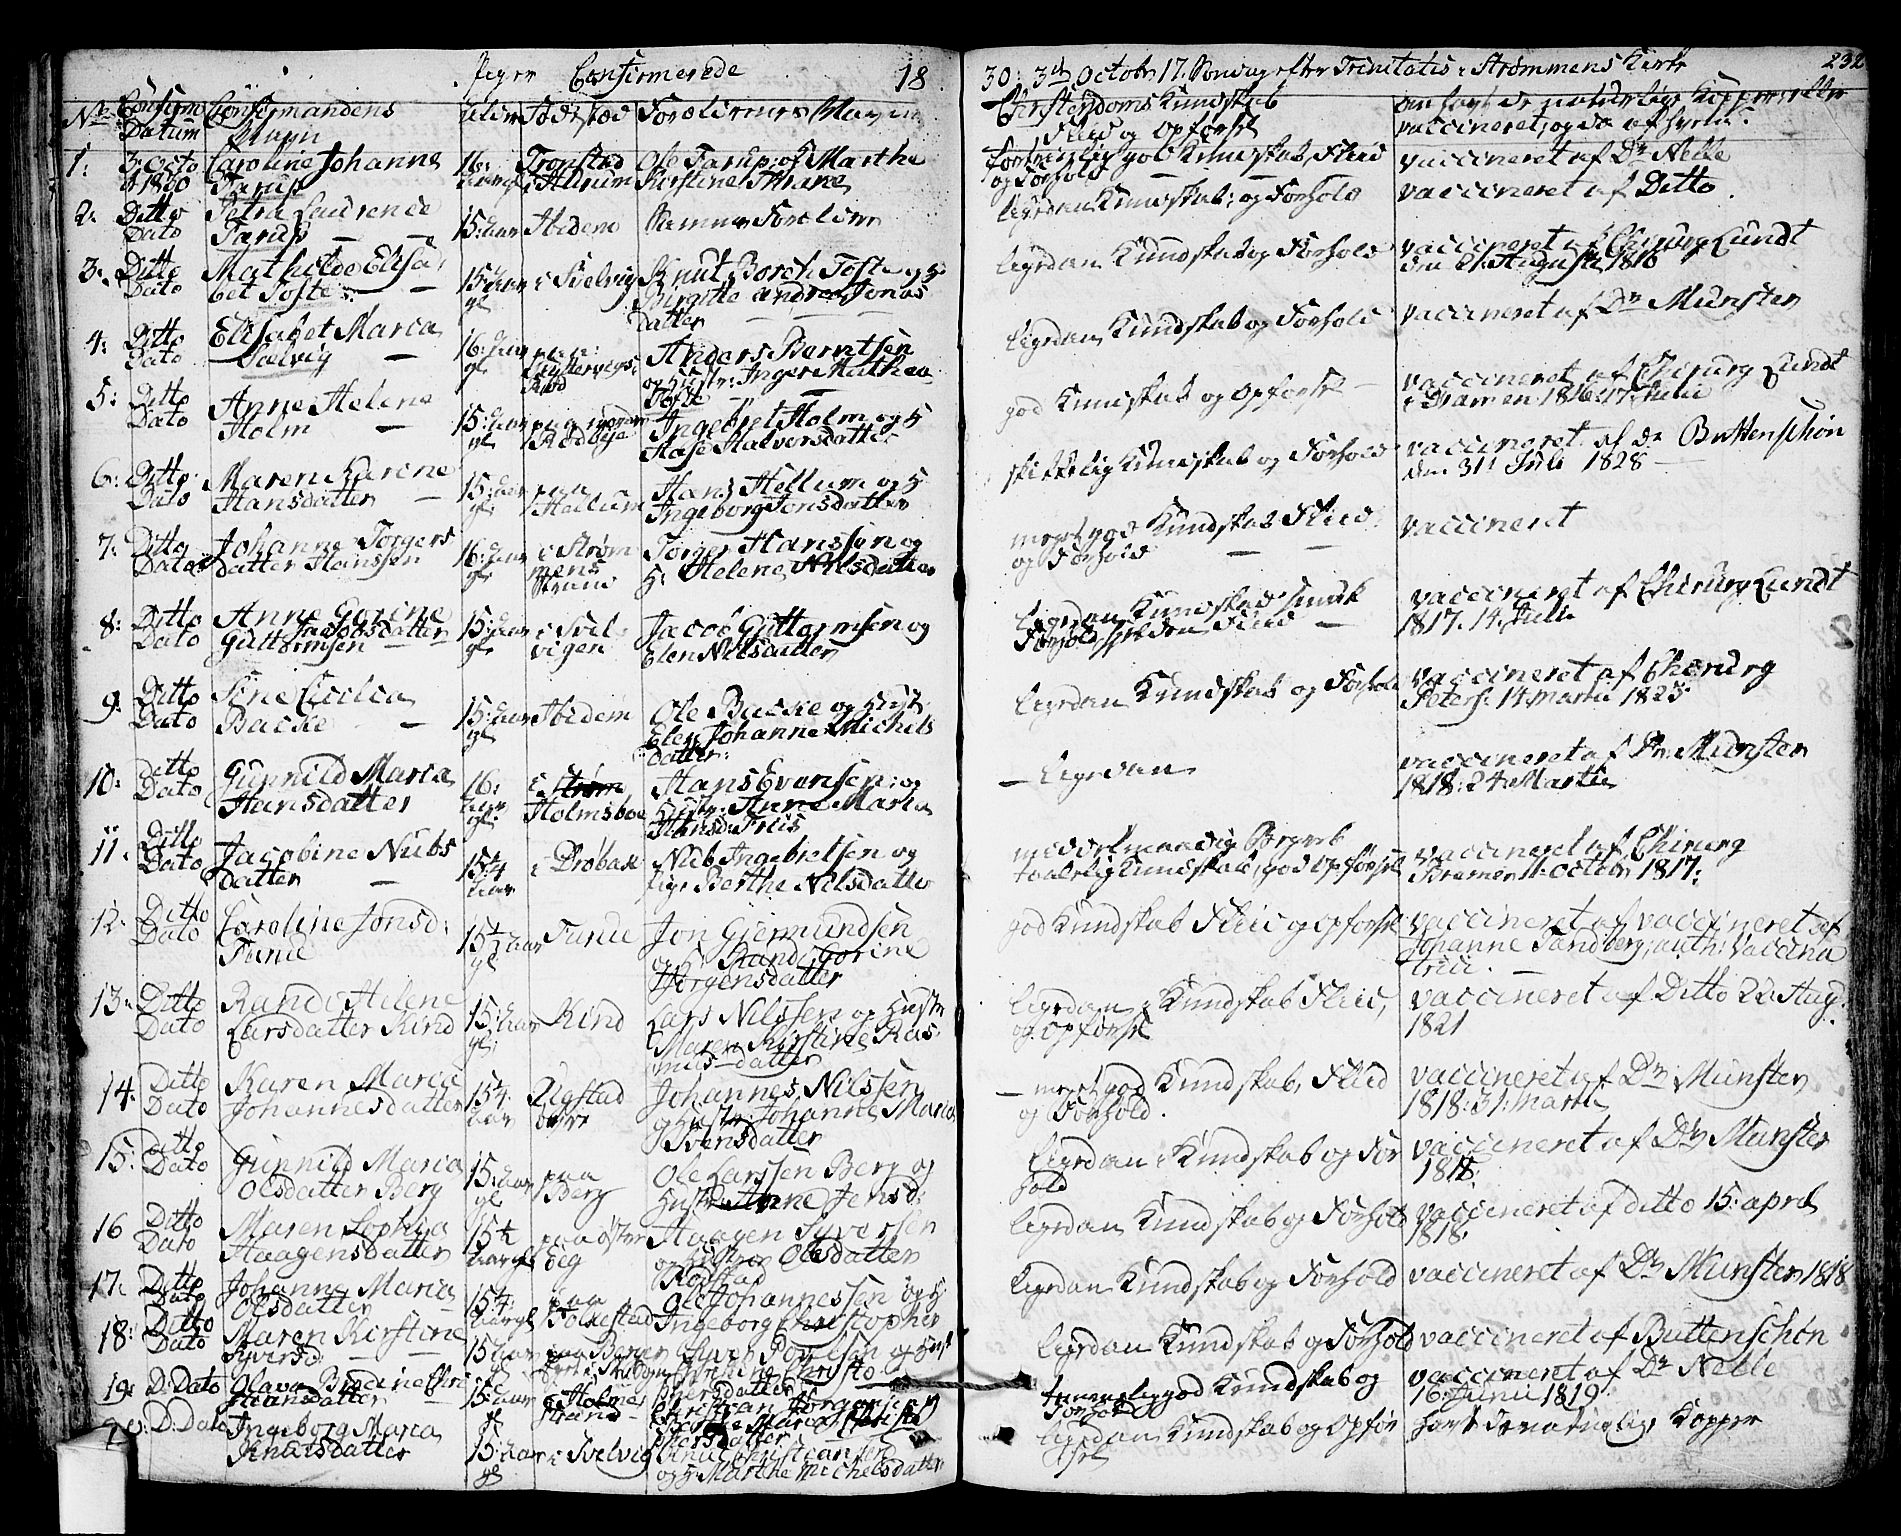 Piger Confirmerede 18
30: 3de Octobr 17. Søndag efter Trinitatis i Strømmens Kirke 232
No Confirm Datum
Confirmandens Navn
Alder
Fødested
Forældrenes Navn
Christendoms Kundskab Fliid og Opførsel
om havt de naturlige Kopper eller vaccineret, og da af hvem.
1: 3die Octo 1830
Caroline Johanne Tarup
16: Aar gl
Tronstad i Hurum
Ole Tarup og Marthe Kirstine Thrane
Fortrinlig god Kundskab Fliid og Forhold
vaccineret af Dr Nelle
2: Ditto Dato
Petra Laurence Tarup
15: Aar
Ibidem
Samme Forældre
ligedan Kundskab; og Forhold
vaccineret af Ditto
3: Ditto Dato
Mathilde Elisabet Tofte
15: Aar gl
i Svelvig
Knut Borch Tofte og H: Birgitte Andrea Jonas datter
ligedan Kundskab og Forhold
vaccineret af Chirurg Lundt den 21 August 1816
4: Ditto Dato
Elisabet Maria Sælvig
16: Aar gl
paa
Anders Berntsen og Hustr: Inger Mathea Tofte
ligedan Kundskab og Forhold
vaccineret af Dr Munster
5: Ditto Dato
Anne Helene Holm
15: Aar gl
paa nordre Rødbye
Ingebret Holm og H Aase Halvorsdatter
god Kundskab og Opførsel
vaccineret af Chirurg Lundt i Drammen 1816: 17 Julii
6: Ditto Dato
Maren Karine Hansdatter
15: Aar gl
paa Hellum
Hans Hellum og H Ingeborg Jonsdatter
skikkelig Kundskab og Forhold
vaccineret af dr Buttenschøn den 31t Juli 1828
7: Ditto Dato
Johanne Torgersdatter Hanssen
16: Aar gl
i Strømmens Strand
Torger Hanssen og H: Helene Nilsdatter
meget god Kundskab Fliid og Forhold
vaccineret
8: Ditto Dato
Anne Gorine Jacobsdatter Guttormsen
15: Aar gl
i Svelvigen
Jacob Guttormsen og Elen Nilsdatter
ligedan Kundskab smuk Forhold sjelden Fliid
vaccineret af Chirurg Lundt 1817. 14 Julii
9: Ditto Dato
Sine Cicilia Backe
15: Aar gl
Ibidem
Ole Backe og Hust Elen Johanne Michelsdatter
ligedan Kundskab og Forhold
vaccineret af Chirurg Peters: 14 martii 1823
10: Ditto Dato
Gunnild Maria Hansdatter
16: Aar gl:
i Strøm Holmsboe
Hans Evensen: og Hustr: Anne Maria Hansd: Friis
ligedan
vaccineret af Dr Munster 1818: 24 Martii
11: Ditto Dato
Jacobine Nubs datter
15 1/4 Aar
i Drøbak
Nub Ingebretsen og Pige Berthe Nilsdatter
middelmaadig Begreb taalelig Kundskab, god Opførsel
vaccineret af Chirurg Kremer 11 octobr 1817:
12: Ditto Dato
Caroline Jonsd: Farue
15 1/2 Aar gl
Farue
Jon Giermundsen og H: Randi Gorine Jørgensdatter
god Kundskab Fliid og Opførsel
vaccineret af vaccineret af Johanne Sandberg, auth: Vaccinatrice.
13: Ditto Dato
Randi Helene Larsdatter Kind
15: Aar gl:
Kind
Lars Nilssen og Hustr Maren Kirstine Rasmusdatter
ligedan Kundskab Fliid, og Opførsel
vaccineret af Ditto 22 Aug: 1821
14: Ditto Dato
Karen Maria Johannesdatter
15 1/4 Aar
Rigstad øvre
Johannes Nilssen og Hustr: Johanne Maria Svensdatter
meget god Kundskab, Fliid og Forhold.
vaccineret af Dr Munster 1818: 31: martii
15: Ditto Dato
Gunnild Maria Olsdatter Berg
15: Aar gl
paa Berg
Ole Larssen Berg og Hustr Anne Jensd:
ligedan Kundskab og Forhold
vaccineret af Dr Munster 1818:
16 Ditto Dato
Maren Sophia Haagensdatter
15 1/2 Aar gl
paa Østerøig
Haagen Syversen og Olsdatter Rodstad
ligedan Kundskab og Forhold
vaccineret af ditto 15: april 1818:
17: Ditto Dato
Johanne Maria Olsdatter
15 1/4 Aar gl
paa Bolkestad
Ole Johannessen og H: Ingeborg Christopher
ligedan Kundskab og Forhold
vaccineret af Dr Munster 1818
18: Ditto Dato
Maren Kirstine Syversd
15: Aar gl
paa Berger
Syver og Hust Christophersdatter
ligedan Kundskab og Forhold
vaccineret af Buttenschøn
19: D: Dato
Olava Hansdatter
15: Aar gl
i Holmestrand
Christian Jørgensen Maria
god Kundskab og Forhold
vaccineret af Dr Nelle 16 Junii 1819:
20: D: Dato
Ingeborg Maria Knudsdatter
15: Aar gl
i Svelvig
Knut Christiansen og H Marthe Michelsdatter
ligedan Kundskab og Opførsel
havt de naturlige Kopper